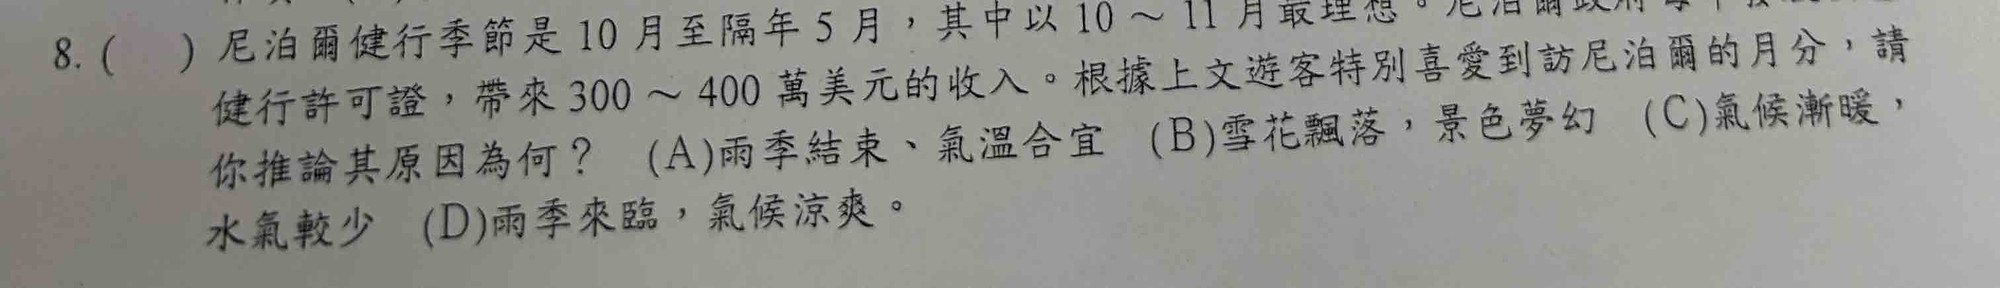 8. (　) 尼泊爾健行季節是 10 月至隔年 5 月，其中以 10 ～ 11 月最理想。尼泊爾政府每年
健行許可證，帶來 300 ～ 400 萬美元的收入。根據上文遊客特別喜愛到訪尼泊爾的月分，請
你推論其原因為何？　(A)雨季結束、氣溫合宜　(B)雪花飄落，景色夢幻　(C)氣候漸暖，
水氣較少　(D)雨季來臨，氣候涼爽。